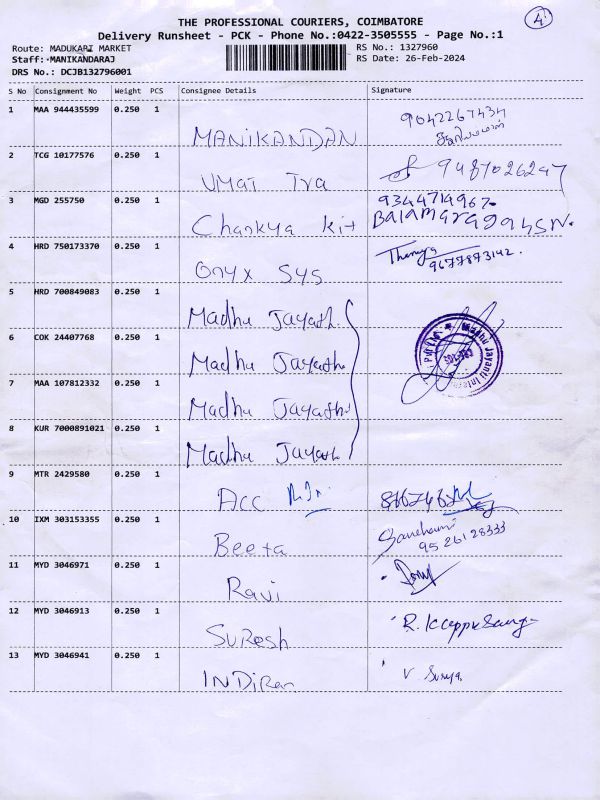 4
THE PROFESSIONAL COURIERS, COIMBATORE
Delivery Runsheet - PCK - Phone No.:0422-3505555 - Page No.:1
Route: MADUKARI MARKET RS No.: 1327960
Staff: MANIKANDARAJ RS Date: 26-Feb-2024
DRS No.: DCJB132796001
S No Consignment No Weight PCS Consignee Details Signature
1 MAA 944435599 0.250 1 MANIKANDAN 9042267434
2 TCG 10177576 0.250 1 UMAI Tra
3 MGD 255750 0.250 1 Chankya Kit 9344714967
4 HRD 750173370 0.250 1 Onyx Sys 9677873142
5 HRD 700849083 0.250 1 Madhu Jayath
6 COK 24407768 0.250 1 Madhu Jayath
7 MAA 107812332 0.250 1 Madhu Jayath
8 KUR 7000891021 0.250 1 Madhu Jayath
Madhu Jayanti
9 MTR 2429580 0.250 1 ACC
10 IXM 303153355 0.250 1 Beeta
9526128333
11 MYD 3046971 0.250 1 Ravi
12 MYD 3046913 0.250 1 SuResh
13 MYD 3046941 0.250 1 INDiRan V Surya